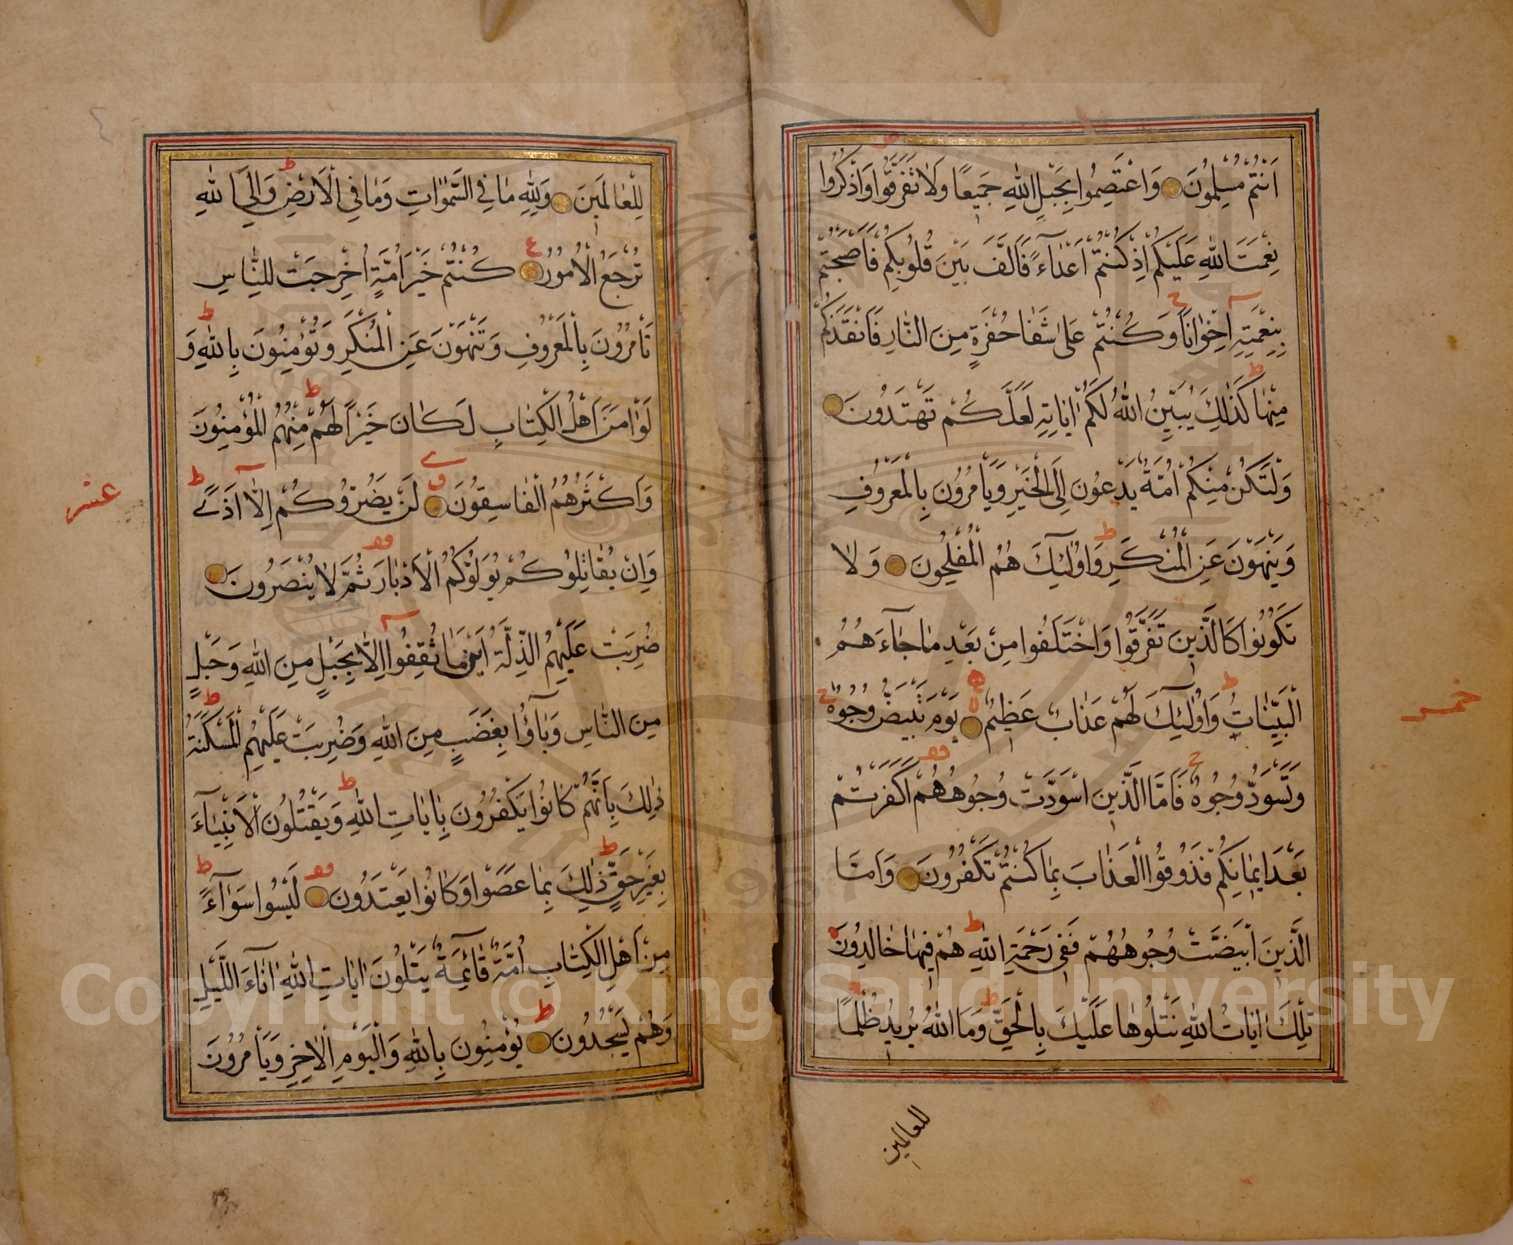 اَنْتُمْ مُسْلِمُونَ وَاعْتَصِمُوا بِحَبْلِ اللّٰهِ جَمٖيعًا وَلَا تَفَرَّقُوا وَاذْكُرُوا
نِعْمَتَ اللّٰهِ عَلَيْكُمْ اِذْ كُنْتُمْ اَعْدَٓاءً فَاَلَّفَ بَيْنَ قُلُوبِكُمْ فَاَصْبَحْتُمْ
بِنِعْمَتِهٖٓ اِخْوَانًا وَكُنْتُمْ عَلٰى شَفَا حُفْرَةٍ مِنَ النَّارِ فَاَنْقَذَكُمْ
مِنْهَا كَذٰلِكَ يُبَيِّنُ اللّٰهُ لَكُمْ اٰيَاتِهٖ لَعَلَّكُمْ تَهْتَدُونَ
وَلْتَكُنْ مِنْكُمْ اُمَّةٌ يَدْعُونَ اِلَى الْخَيْرِ وَيَاْمُرُونَ بِالْمَعْرُوفِ
وَيَنْهَوْنَ عَنِ الْمُنْكَرِ وَاُولٰٓئِكَ هُمُ الْمُفْلِحُونَ وَلَا
تَكُونُوا كَالَّذٖينَ تَفَرَّقُوا وَاخْتَلَفُوا مِنْ بَعْدِ مَا جَٓاءَهُمُ
الْبَيِّنَاتُ وَاُولٰٓئِكَ لَهُمْ عَذَابٌ عَظٖيمٌ يَوْمَ تَبْيَضُّ وُجُوهٌ
خمس
وَتَسْوَدُّ وُجُوهٌ فَاَمَّا الَّذٖينَ اسْوَدَّتْ وُجُوهُهُمْ اَكَفَرْتُمْ
بَعْدَ اٖيمَانِكُمْ فَذُوقُوا الْعَذَابَ بِمَا كُنْتُمْ تَكْفُرُونَ وَاَمَّا
الَّذٖينَ ابْيَضَّتْ وُجُوهُهُمْ فَفٖى رَحْمَةِ اللّٰهِ هُمْ فٖيهَا خَالِدُونَ
تِلْكَ اٰيَاتُ اللّٰهِ نَتْلُوهَا عَلَيْكَ بِالْحَقِّ وَمَا اللّٰهُ يُرٖيدُ ظُلْمًا
للعالمين
لِلْعَالَمٖينَ وَلِلّٰهِ مَا فِى السَّمٰوَاتِ وَمَا فِى الْاَرْضِ وَاِلَى اللّٰهِ
تُرْجَعُ الْاُمُورُ كُنْتُمْ خَيْرَ اُمَّةٍ اُخْرِجَتْ لِلنَّاسِ
تَاْمُرُونَ بِالْمَعْرُوفِ وَتَنْهَوْنَ عَنِ الْمُنْكَرِ وَتُؤْمِنُونَ بِاللّٰهِ وَ
لَوْ اٰمَنَ اَهْلُ الْكِتَابِ لَكَانَ خَيْرًا لَهُمْ مِنْهُمُ الْمُؤْمِنُونَ
وَاَكْثَرُهُمُ الْفَاسِقُونَ لَنْ يَضُرُّوكُمْ اِلَّٓا اَذًى
عشر
وَاِنْ يُقَاتِلُوكُمْ يُوَلُّوكُمُ الْاَدْبَارَ ثُمَّ لَا يُنْصَرُونَ
ضُرِبَتْ عَلَيْهِمُ الذِّلَّةُ اَيْنَ مَا ثُقِفُٓوا اِلَّا بِحَبْلٍ مِنَ اللّٰهِ وَحَبْلٍ
مِنَ النَّاسِ وَبَٓاؤُ بِغَضَبٍ مِنَ اللّٰهِ وَضُرِبَتْ عَلَيْهِمُ الْمَسْكَنَةُ
ذٰلِكَ بِاَنَّهُمْ كَانُوا يَكْفُرُونَ بِاٰيَاتِ اللّٰهِ وَيَقْتُلُونَ الْاَنْبِيَٓاءَ
بِغَيْرِ حَقٍّ ذٰلِكَ بِمَا عَصَوْا وَكَانُوا يَعْتَدُونَ لَيْسُوا سَوَٓاءً
مِنْ اَهْلِ الْكِتَابِ اُمَّةٌ قَٓائِمَةٌ يَتْلُونَ اٰيَاتِ اللّٰهِ اٰنَٓاءَ الَّيْلِ
وَهُمْ يَسْجُدُونَ يُؤْمِنُونَ بِاللّٰهِ وَالْيَوْمِ الْاٰخِرِ وَيَاْمُرُونَ
Copyright © King Saud University